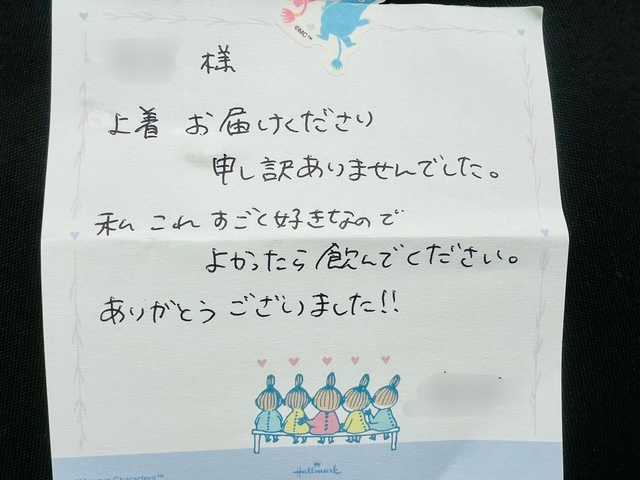 ©MC™
様
上着 お届けくださり
申し訳ありませんでした。
私 これ すごく好きなので
よかったら 飲んでください。
ありがとう ございました!!
Hallmark
Characters™